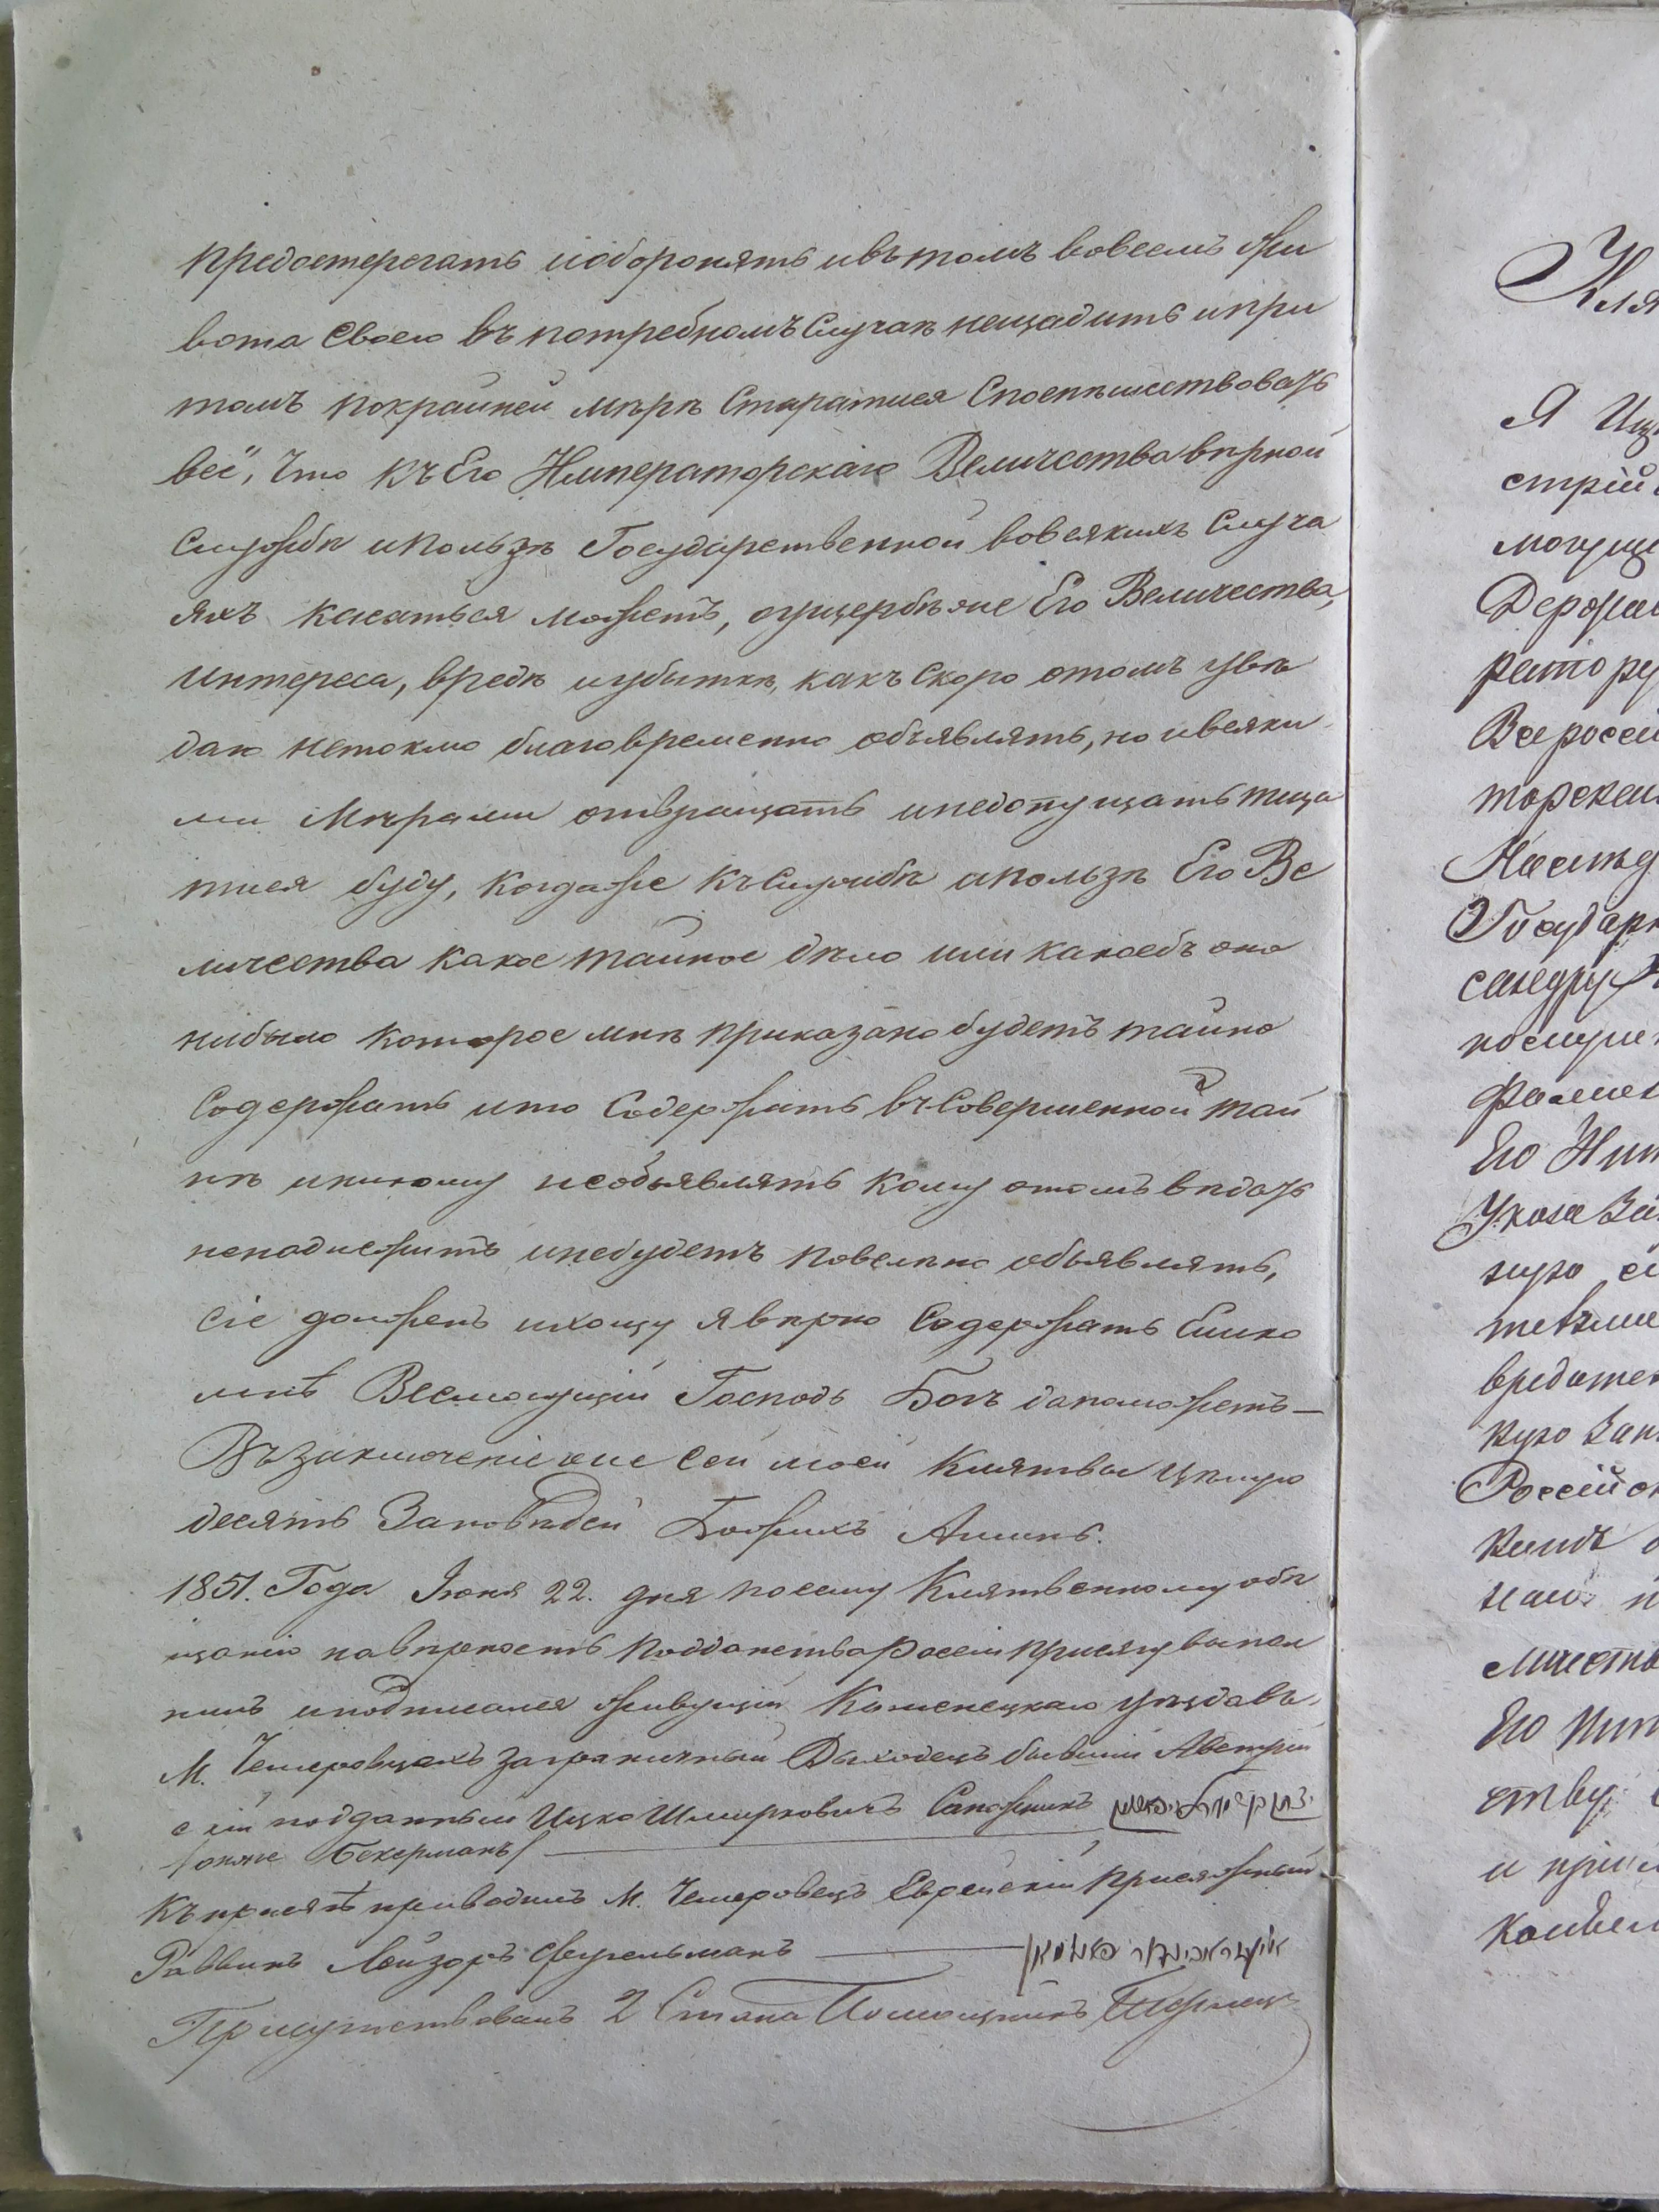 предостерегать иоборонять ивътомъ вовсемъ жи
вота Своего въ потребномъ Случаѣ нещадить ипри
томъ покрайней мѣрѣ Старатися Споспѣшествовать
всё, Что къ Его Императорскаго Величества вѣрной
Службѣ иПользѣ Государственной вовсякихъ Случа
яхъ касаться можетъ, оущербѣ же Его Величества,
интереса, вредѣ иубыткѣ, какъ Скоро отомъ увѣ
даю нетокмо благовременно объявлять, но ивсяки
ми Мѣрами отвращать инедопущать тща
тися буду, когдаже къ Службѣ ипользѣ Его Ве
личества какое тайное дѣло или какоебъ оно
нибыло которое мнѣ приказано будетъ тайно
Содержать ито Содержать въ Совершенной тай
нѣ иникому необъявлять кому отомъ вѣдать
ненадлежитъ инебудетъ повелѣно объявлять,
сіе долженъ ихощу я вѣрно Содержать Елико
мнѣ Всемогущій Господь Богъ даможетъ—
Въ заключеніе же сей моей Клятвы Цѣлую
десять Заповѣдей Божихъ Аминь.
1851. Года Іюня 22. дня посему Клятвенному обѣ
щанію навѣрность Подданства Россіи присягу выпол
нилъ иподписался живущій Каменецкаго уѣзда въ
М. Чемеровцахъ заграничный Выходецъ бывшій Австрій
скій подданный Ицко Шмирковичъ Сапожникъ
/онже Бекерманъ/
Къ присягѣ приводилъ М. Чемеровецъ Еврейскій Присяжный
Раввинъ Лейзоръ Фугельманъ
Присутствовалъ 2 Стана Помощникъ
Кля
Я Ицк
стрій
могуще
Держав
ратору
Всеросси
торском
Наслѣд
Государ
Его Имп
Указа
вредител
Россійс
Его Имп
ству
и при